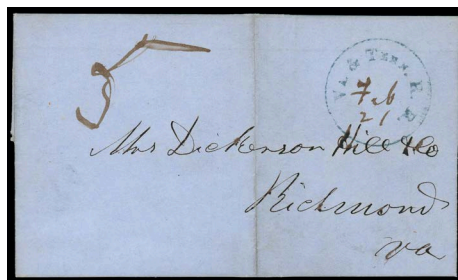 5
VA. & TENN. R. R.
Feb
21
Mrs Dickenson Hill & Co
Richmond
va